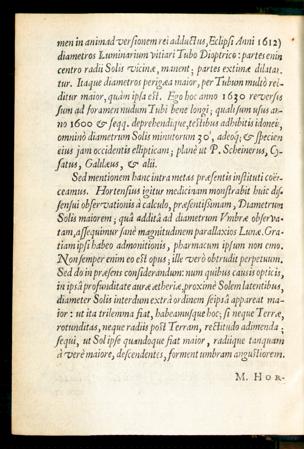 men in animadversionem rei adductus, Eclipsi Anni 1612)
diametros Luminarium vitiari Tubo Dioptrico: partes enim
centro radii Solis vicinæ, manent; partes extimæ dilatan-
tur. Itaque diametros perigæa maior, per Tubum multò red-
ditur maior, quàm ipsa est. Ego hoc anno 1630 reversus
sum ad foramen nudum Tubi bene longi; quali sum usus an-
no 1600 & seqq. deprehendique, testibus adhibitis idoneis,
omninò diametrum Solis minutorum 30', adeoq; & speciem
eius jam occidentis ellipticam; planè ut P. Scheinerus, Cy-
satus, Galilæus, & alii.
Sed mentionem hanc intra metas præsentis instituti coër-
ceamus. Hortensius igitur medicinam monstrabit huic dis-
sensui observationis à calculo, præsentissimam, Diametrum
Solis maiorem; quâ additâ ad diametrum Umbræ observa-
tam, assequimur sanè magnitudinem parallaxios Lunæ. Gra-
tiam ipsi habeo admonitionis, pharmacum ipsum non emo.
Non semper enim eo est opus; ille verò obtrudit perpetuum.
Sed do in præsens considerandum: num quibus causis opticis,
in ipsâ profunditate auræ ætheriæ, proximè Solem latentibus,
diameter Solis interdum extra ordinem seipsâ appareat ma-
ior: ut ita trilemma fiat, habeamusque hoc; si neque Terræ,
rotunditas, neque radiis post Terram, rectitudo adimenda;
sequi, ut Sol ipse quandoque fiat maior, radiique tanquam
à verè maiore, descendentes, forment umbram angustiorem.
M. HOR-